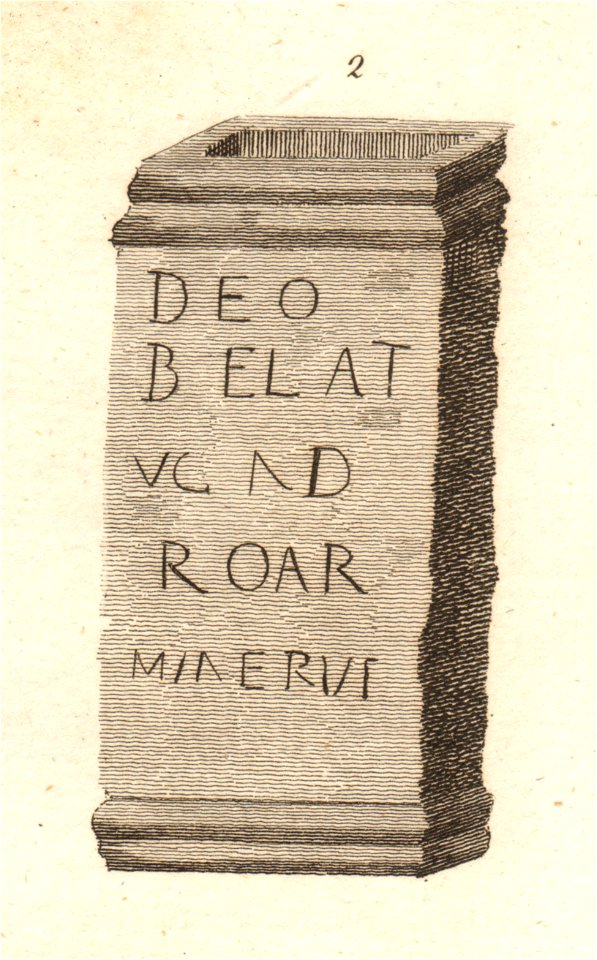 2
DEO
BELAT
VC ND
ROAR
MINERVI